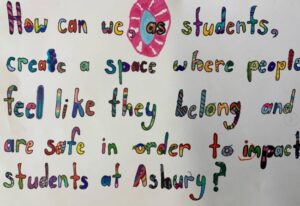 How can we, as students,
create a space where people
feel like they belong and
are safe in order to impact
students at Asbury?